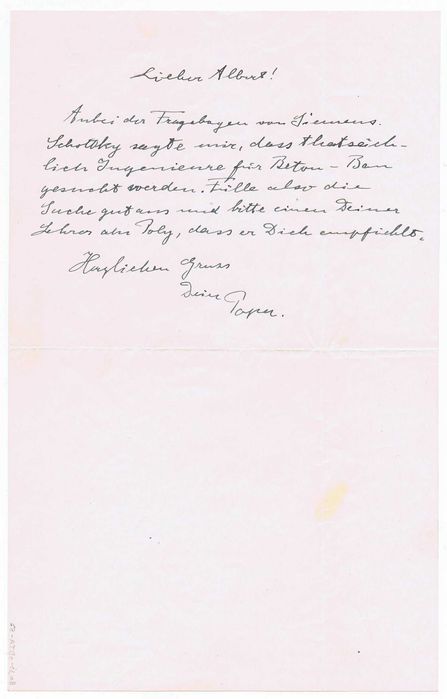 Lieber Albert!
Anbei der Fragebogen von Siemens.
Schottky sagte mir, dass thatsäch-
lich Ingenieure für Beton-Bau
gesucht werden. Fülle also die
Suche gut aus und bitte einen Deiner
Lehrer am Poly, dass er Dich empfiehlt.
Herzlichen Gruss
Dein
Papa.